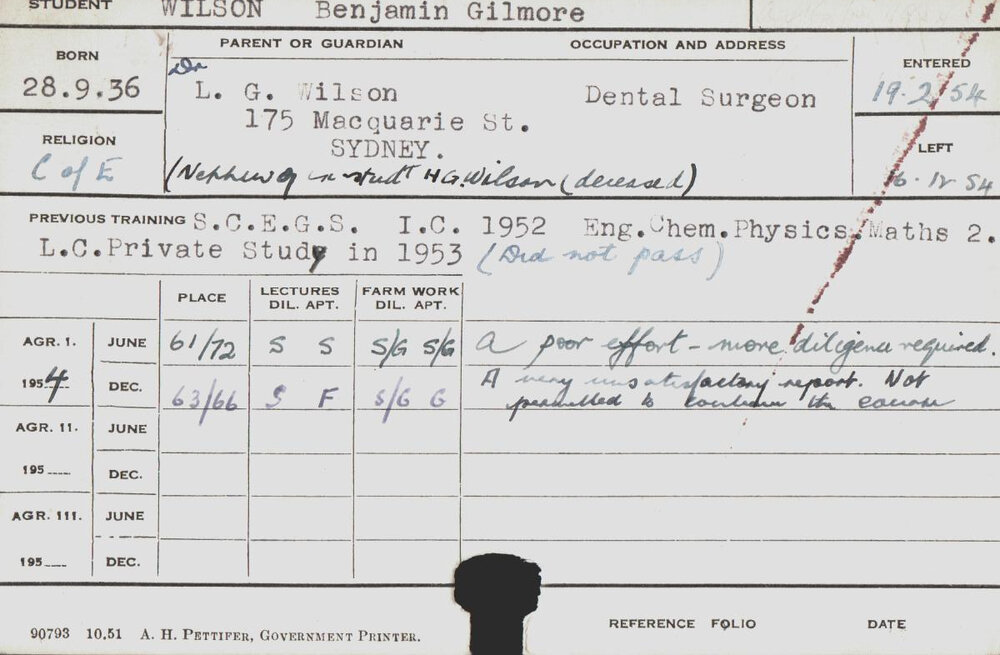 STUDENT WILSON Benjamin Gilmore
BORN PARENT OR GUARDIAN OCCUPATION AND ADDRESS ENTERED
28.9.36 Dr L. G. Wilson Dental Surgeon 19.2.54
175 Macquarie St.
RELIGION SYDNEY. LEFT
C of E (Nephew of ex-studt H.G. Wilson (deceased) 16.12.54
PREVIOUS TRAINING S.C.E.G.S. I.C. 1952 Eng.Chem.Physics.Maths 2.
L.C.Private Study in 1953 (Did not pass)
PLACE LECTURES FARM WORK
DIL. APT. DIL. APT.
AGR. 1. JUNE 61/72 S S S/G S/G A poor effort - more diligence required.
1954 DEC. 63/66 S F S/G G A very unsatisfactory report. Not
permitted to continue the course
AGR. 11. JUNE
195 DEC.
AGR. 111. JUNE
195 DEC.
REFERENCE FOLIO DATE
90793 10.51 A. H. PETTIFER, GOVERNMENT PRINTER.